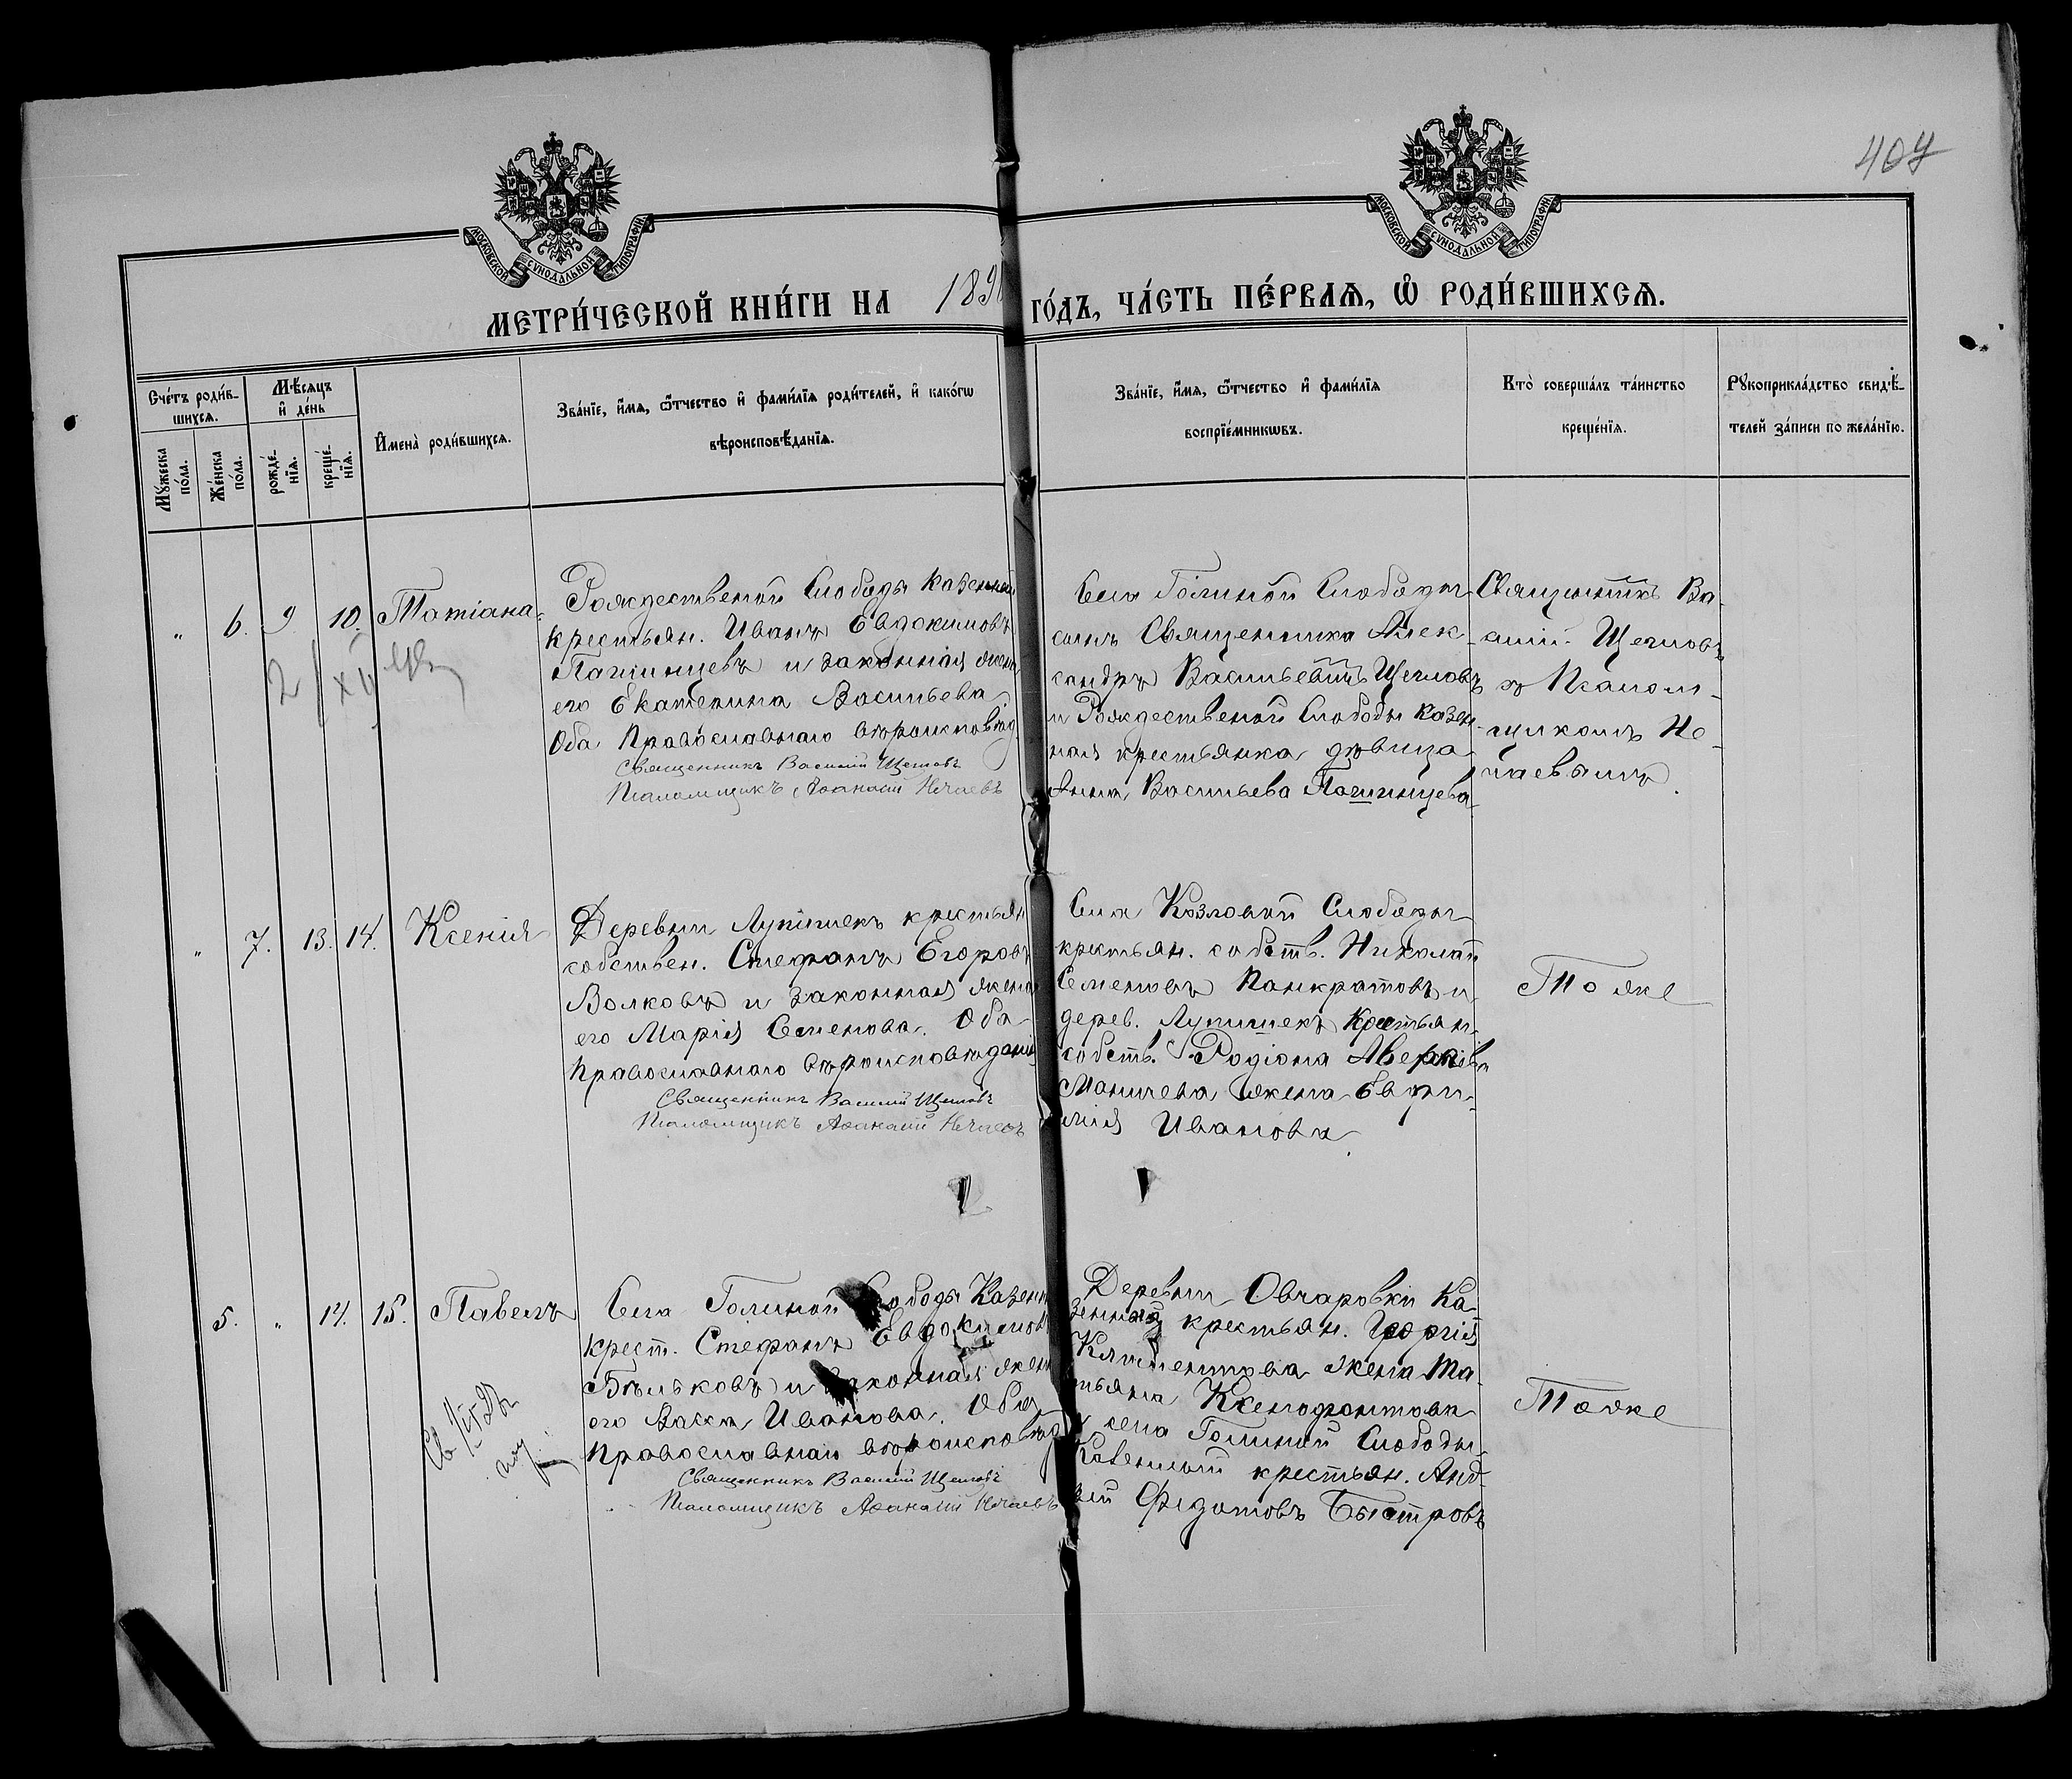 407
МОСКОВСКОЙ СѴНОДАЛЬНОЙ ТИПОГРАФІИ
МОСКОВСКОЙ СѴНОДАЛЬНОЙ ТИПОГРАФІИ
МЕТРИ́ЧЕСКОЙ КНИ́ГИ НА 189
ГО́ДЪ, ЧА́СТЬ ПЕ́РВАѦ, Ѡ РОДИ́ВШИХСѦ.
Сче́тъ роди́в-
шихсѧ.
Мꙋ́жеска
по́ла.
Же́нска
по́ла.
Мѣ́сѧцъ
и҆ де́нь
рожде́-
нїѧ.
креще́-
нїѧ.
И҆мена̀ роди́вшихсѧ.
Зва́нїе, и҆́мѧ, ѻ҆́тчество и҆ фами́лїѧ роди́телей, и҆ како́гѡ
вѣроисповѣ́данїѧ.
Зва́нїе, и҆́мѧ, ѻ҆́тчество и҆ фами́лїѧ
воспрїе́мникѡвъ.
Кто̀ соверша́лъ та́инство
креще́нїѧ.
Рꙋкоприкла́дство свидѣ́-
телей за́писи по жела́нїю.
" 6. 9. 10. Татіана.
2/XII
Рождественой Слободы казенный
крестьян. Иванъ Евдокимовъ
Пашинцевъ и законная жена
его Екатерина Васильева
Оба Православнаго вѣроисповѣд.
Священникъ Василій Щегловъ
Псаломщикъ Аѳанасій Нечаевъ
Села Голиной Слободы
сынъ Священника Алек-
сандръ Васильевичъ Щегловъ
и Рождественой Слободы казен-
ная крестьянка дѣвица
Анна Васильева Пашинцева
Священникъ Ва-
силій Щегловъ
съ Псалом-
щикомъ Не-
чаевымъ.
" 7. 13. 14. Ксенія
Деревни Лупишекъ крестьян
собствен. Стефанъ Егоровъ
Волковъ и законная жена
его Марія Семенова. Оба
Православнаго вѣроисповѣдані
Священникъ Василій Щегловъ
Псаломщикъ Аѳанасій Нечаевъ
Села Козловой Слободы
крестьян. собств. Николай
Семеновъ Панкратовъ и
дерев. Лупишекъ Крестьян.
собств. Родіона Аверкіева
жена Евфи-
мія Иванова.
Тоже
5. " 14. 15. Павелъ
Села Голиной Слободы Казенн
крест. Стефанъ Евдокимов
Бѣльковъ и законная жена
его Васса Иванова. Оба
Православнаго вѣроисповѣд
Священникъ Василій Щегловъ
Псаломщикъ Аѳанасій Нечаевъ
Деревни Овчаровки Ка-
зенный крестьян. Георгія
Климентова жена Та-
тьяна Ксенофонтова
и села Голиной Слободы
Казенный крестьян. Анд-
рей Федотовъ Быстровъ
Тоже